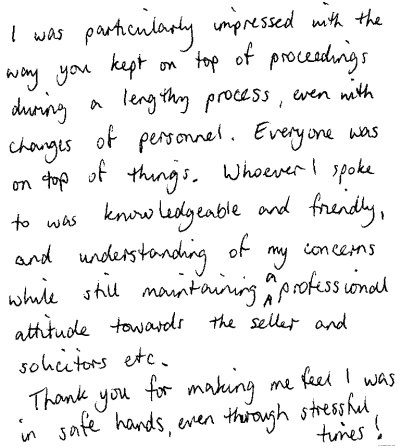 I was particularly impressed with the
way you kept on top of proceedings
during a lengthy process, even with
changes of personnel. Everyone was
on top of things. Whoever I spoke
to was knowledgeable and friendly,
and understanding of my concerns
while still maintaining a professional
attitude towards the seller and
solicitors etc.
Thank you for making me feel I was
in safe hands, even through stressful
times!